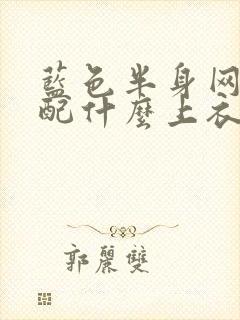 藍色半身网
配什麼上衣
郭麗雙